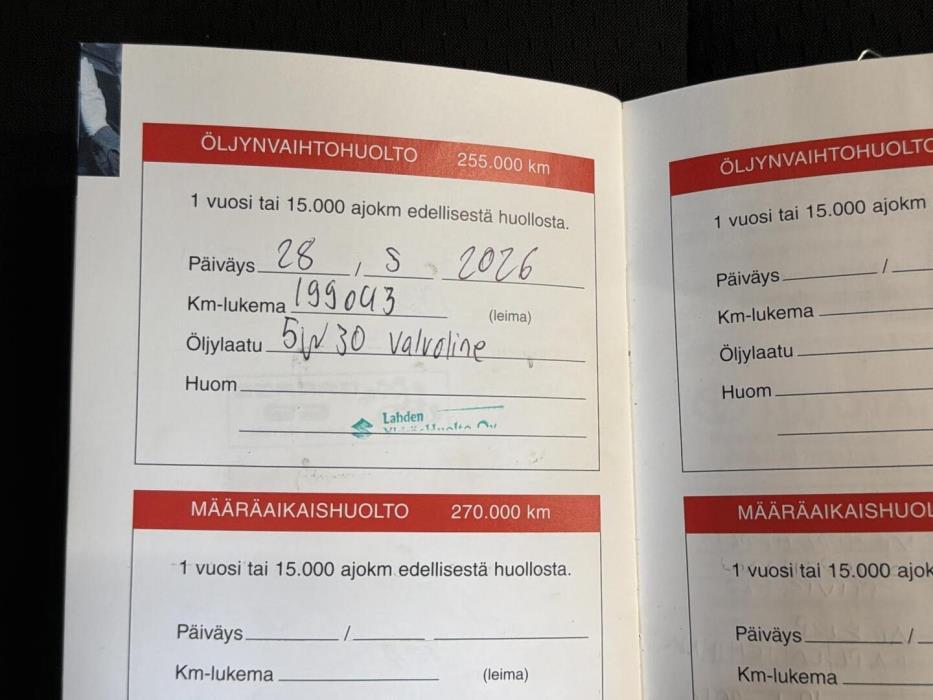 ÖLJYNVAIHTOHUOLTO 255.000 km
1 vuosi tai 15.000 ajokm edellisestä huollosta.
Päiväys 28 / 5 2026
Km-lukema 199043 (leima)
Öljylaatu 5W30 Valvoline
Huom
Lahden
MÄÄRÄAIKAISHUOLTO 270.000 km
1 vuosi tai 15.000 ajokm edellisestä huollosta.
Päiväys /
Km-lukema (leima)
ÖLJYNVAIHTOHUOLTO
1 vuosi tai 15.000 ajokm
Päiväys /
Km-lukema
Öljylaatu
Huom
MÄÄRÄAIKAISHUOL
1 vuosi tai 15.000 ajok
Päiväys /
Km-lukema